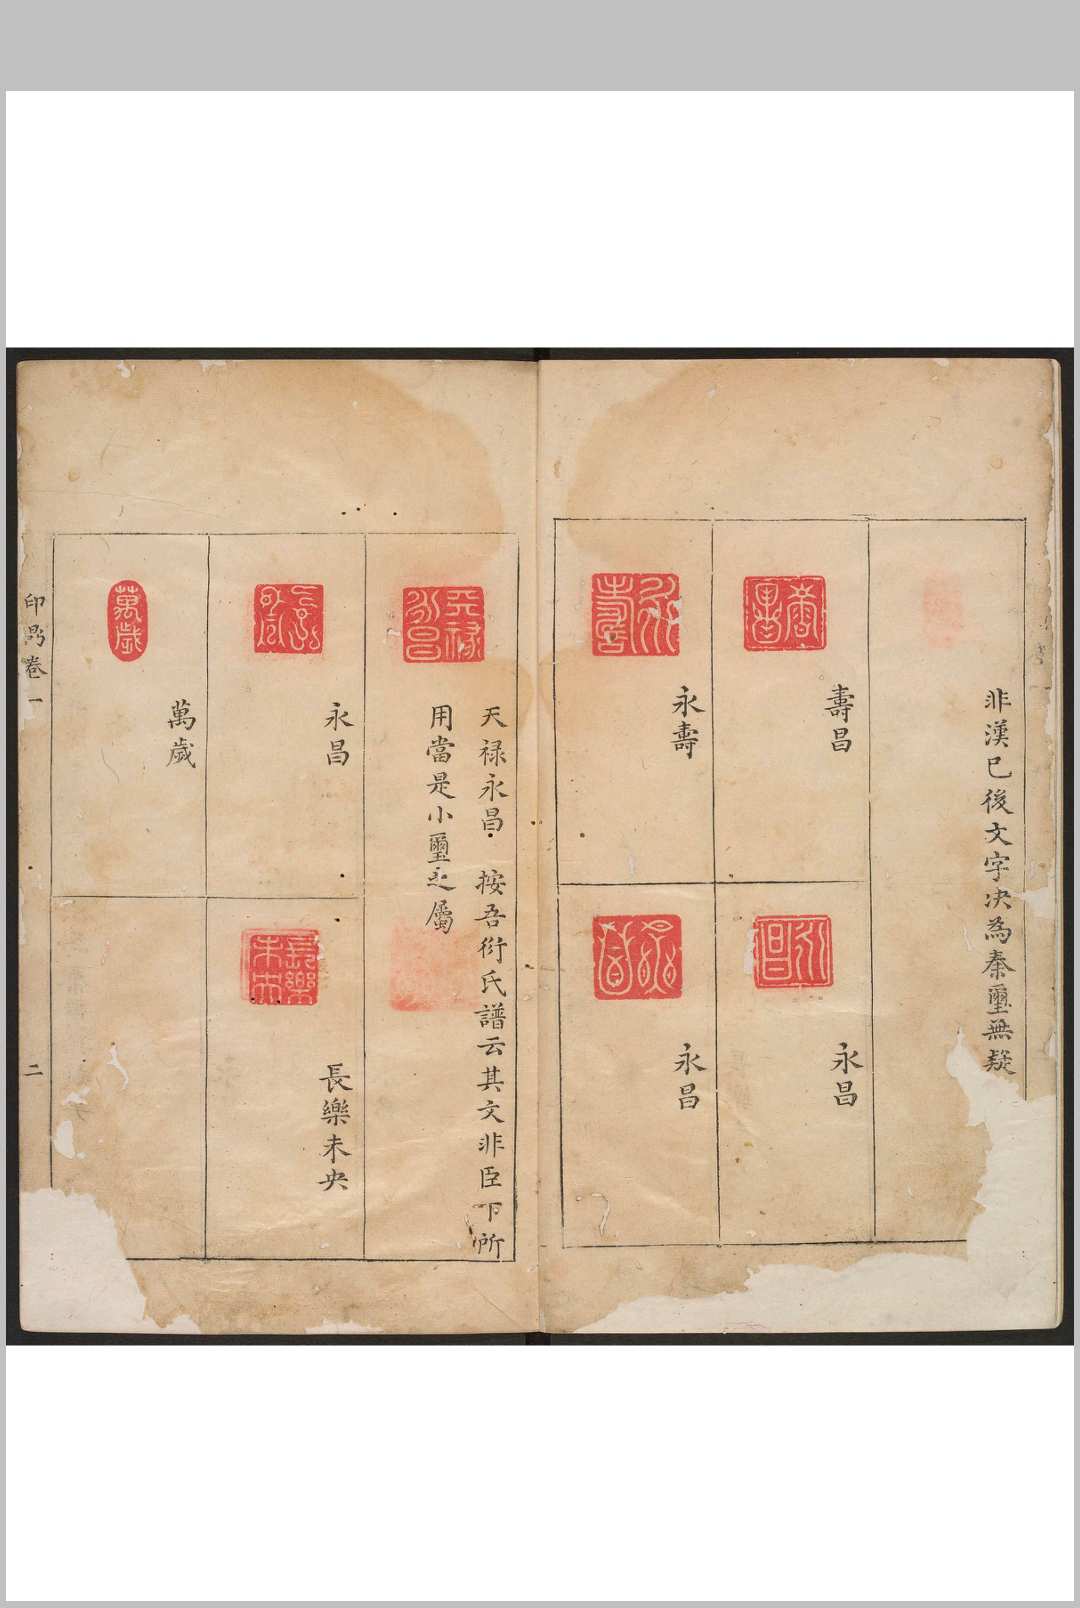 非漢已後文字决為秦璽無疑
壽昌
永昌
永壽
永昌
天禄永昌 按吾衍氏譜云其文非臣下所
用當是小璽之屬
永昌
長樂未央
萬歲
印
卷一
二